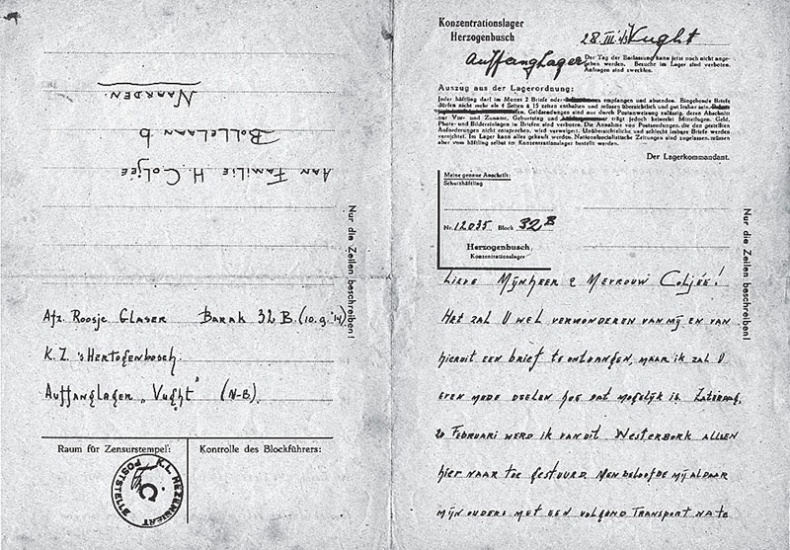 NAARDEN.
BOLLELAAN 6
AAN FAMILIE H. COLJÉE
Nur die Zeilen beschreiben!
Afz. Roosje GLASER BARAK 32 B. (10.9.'14)
K.Z. 'sHERTOGENBOSCH.
AUFFANGLAGER „VUGHT" (N-B).
Raum für Zensurstempel:
Kontrolle des Blockführers:
K.L. HERZOGENBUSCH
POSTSTELLE
Konzentrationslager
Herzogenbusch
28.III.'43 Vught
Auffanglager
Der Tag der Entlassung kann jetzt noch nicht angegeben werden. Besuche im Lager sind verboten.
Anfragen sind zwecklos.
Auszug aus der Lagerordnung:
Jeder Häftling darf im Monat 2 Briefe oder empfangen und absenden. Eingehende Briefe
dürfen nicht mehr als 4 Seiten à 15 Zeilen enthalten und müssen übersichtlich und gut lesbar sein.
Geldsendungen sind nur durch Postanweisung zulässig, deren Abschnitt
nur Vor- und Zuname, Geburtstag und trägt jedoch keinerlei Mitteilungen. Geld,
Photo- und Bildereinlagen in Briefen sind verboten. Die Annahme von Postsendungen, die den gestellten
Anforderungen nicht entsprechen, wird verweigert. Unübersichtliche und schlecht lesbare Briefe werden
vernichtet. Im Lager kann alles gekauft werden. Nationalsozialistische Zeitungen sind zugelassen, müssen
aber vom Häftling selbst im Konzentrationslager bestellt werden.
Der Lagerkommandant.
Meine genaue Anschrift:
Schutzhäftling
Nr. 12035 Block 32 B
Herzogenbusch
Konzentrationslager
Nur die Zeilen beschreiben!
LIEVE MIJNHEER & MEVROUW COLJÉE!
HET ZAL U WEL VERWONDEREN VAN MIJ EN VAN
HIERUIT EEN BRIEF TE ONTVANGEN, MAAR IK ZAL U
EVEN MEDE DEELEN HOE DAT MOGELIJK IS. ZATERDAG,
20 FEBRUARI WERD IK VANUIT WESTERBORK ALLEEN
HIER NAAR TOE GESTUURD. MEN BELOOFDE MIJ ALDAAR
MIJN OUDERS MET EEN VOLGEND TRANSPORT NA TE